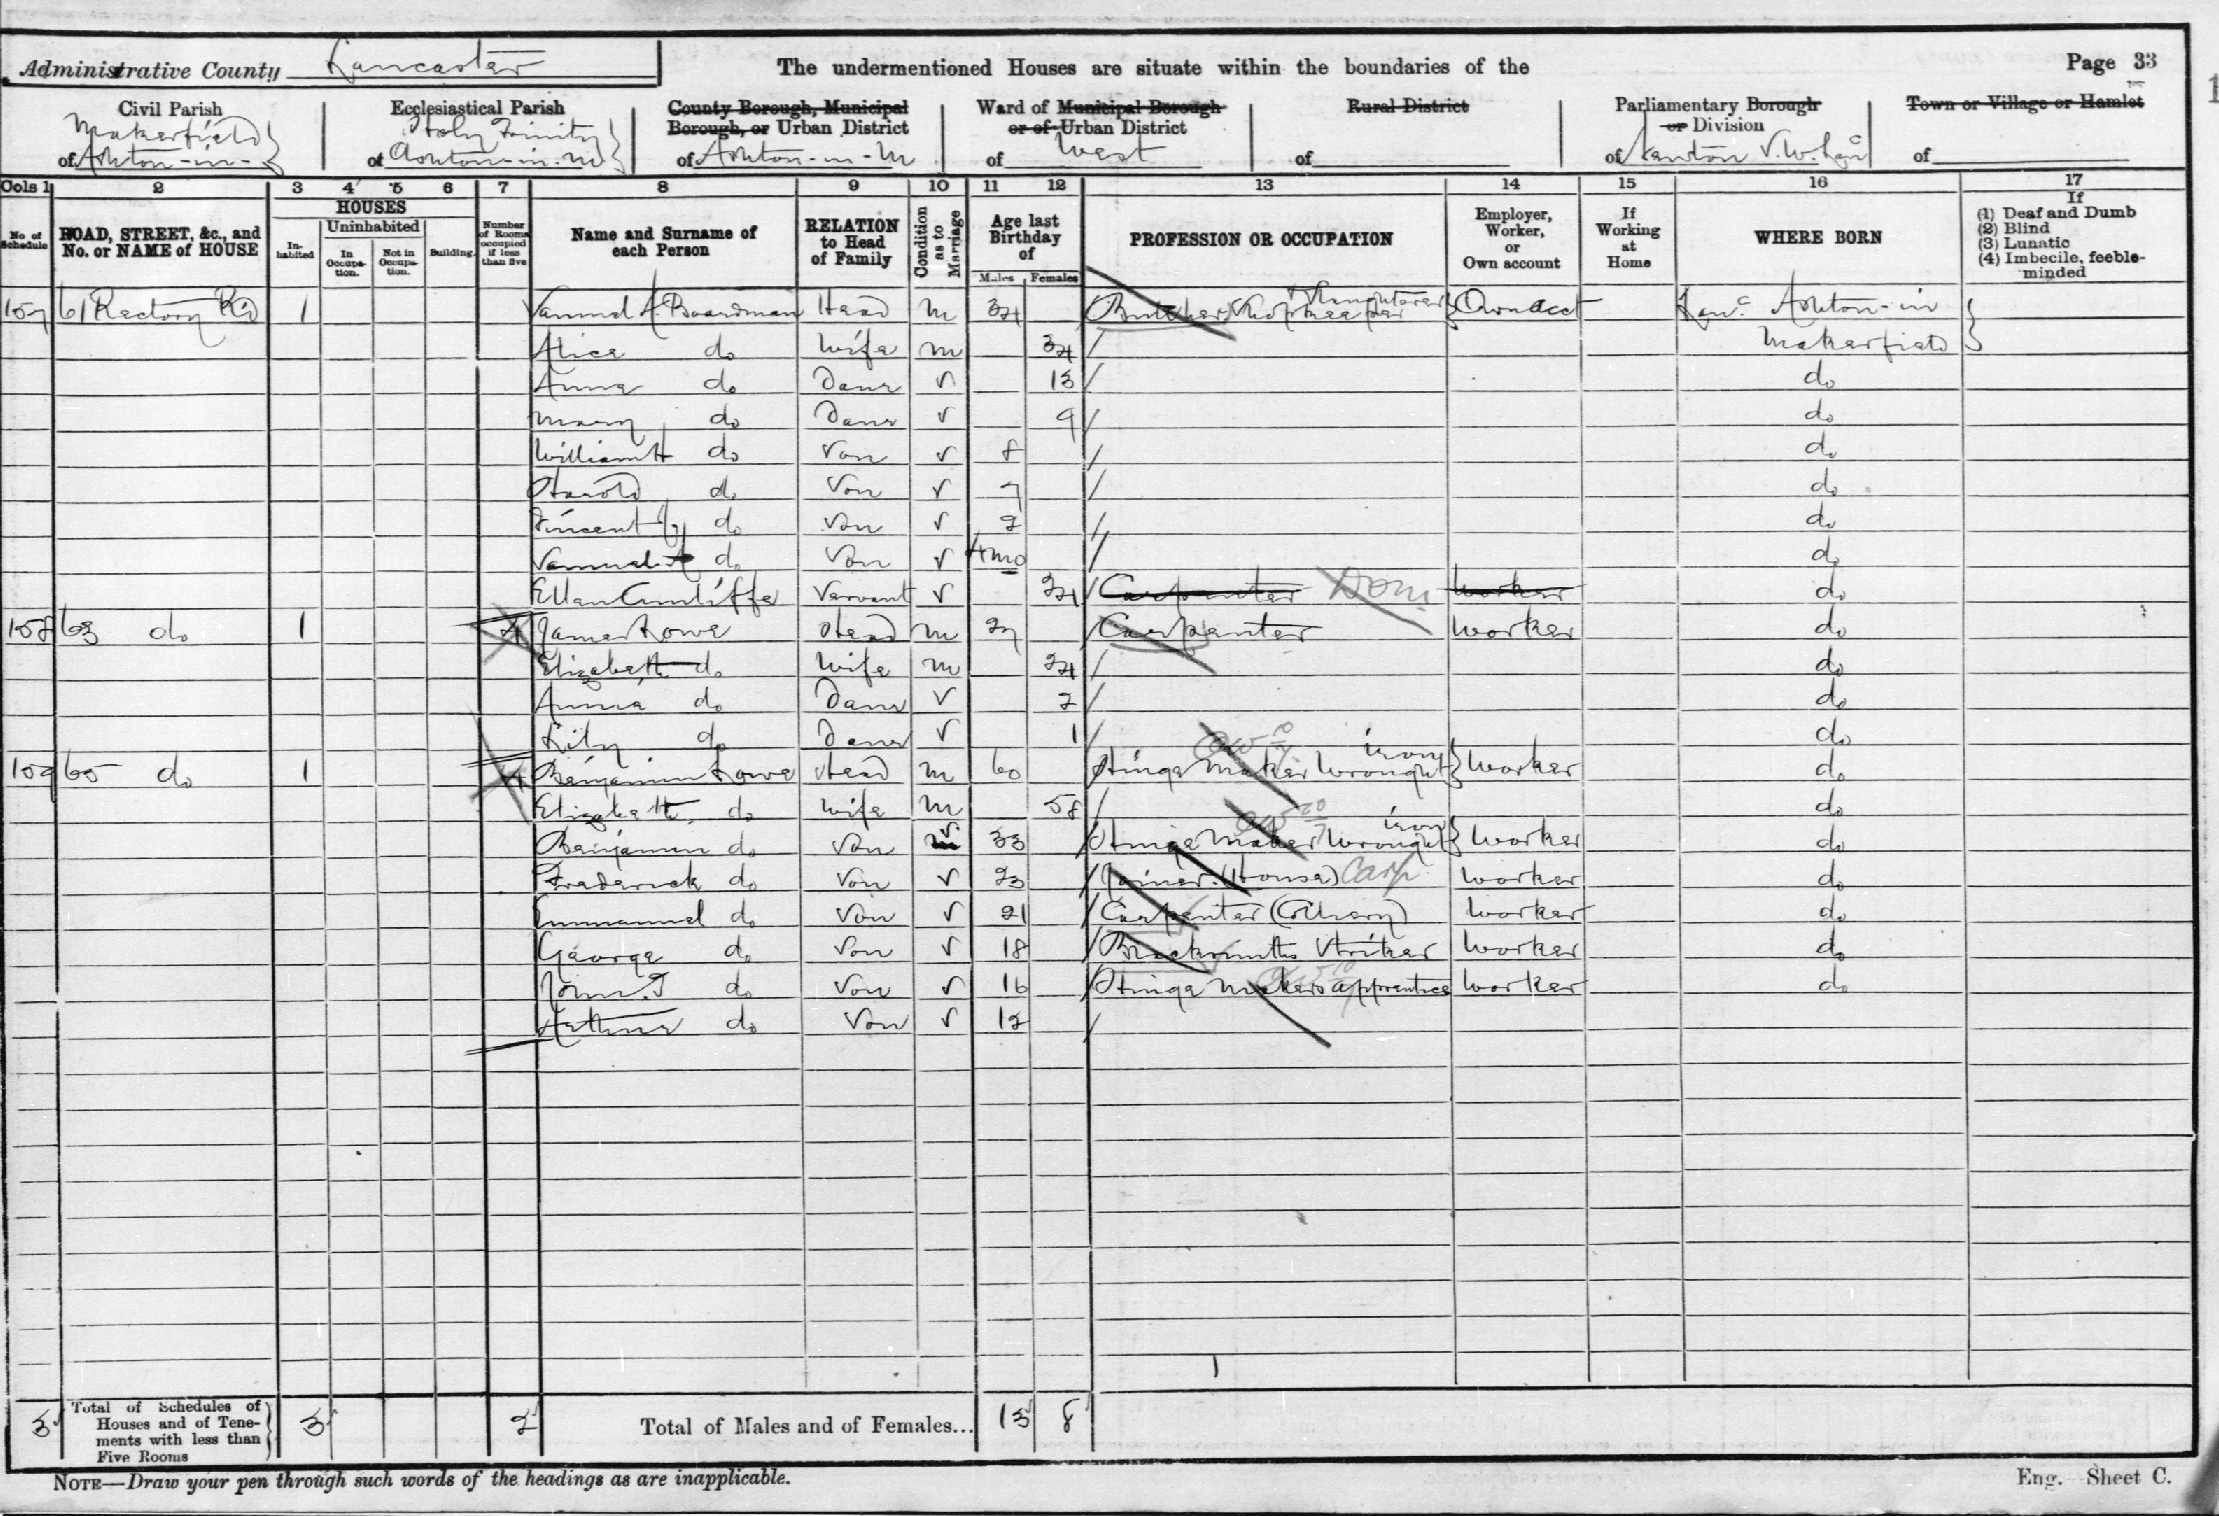 Administrative County Lancaster
The undermentioned Houses are situate within the boundaries of the
Page 33
Civil Parish
Makerfield
of Ashton-in-
Ecclesiastical Parish
Holy Trinity
of Ashton-in-M
County Borough, Municipal
Borough, or Urban District
of Ashton-in-M
Ward of Municipal Borough
or of Urban District
of West
Rural District
of
Parliamentary Borough
or Division
of Newton S.W. Lanc
Town or Village or Hamlet
of
Cols 1 2 3 4 5 6 7 8 9 10 11 12 13 14 15 16 17
No. of Schedule
ROAD, STREET, &c., and No. or NAME of HOUSE
HOUSES
Inhabited
Uninhabited
In Occupation.
Not in Occupation.
Building.
Number of Rooms occupied if less than five
Name and Surname of each Person
RELATION to Head of Family
Condition as to Marriage
Age last Birthday of
Males Females
PROFESSION OR OCCUPATION
Employer, Worker, or Own account
If Working at Home
WHERE BORN
If
(1) Deaf and Dumb
(2) Blind
(3) Lunatic
(4) Imbecile, feeble-minded
157 61 Rectory Rd 1 Samuel A. Boardman Head M 34 Butcher Shopkeeper & Slaughterer Own acct Lanc Ashton-in
Alice do Wife M 34 Makerfield
Anna do Daur S 13 do
Mary do Daur S 9 do
William H do Son S 8 do
Harold do Son S 7 do
Vincent do Son S 2 do
Samuel A do Son S 4mo do
Ellen Cunliffe Servant S 24 Carpenter Dom worker do
158 63 do 1 4 James Lowe Head M 27 Carpenter worker do
Elizabeth do Wife M 24 do
Annie do Daur S 2 do
Lily do Daur S 1 do
159 65 do 1 4 Benjamin Lowe Head M 60 Hinge Maker Wrought iron Worker do
Elizabeth do Wife M 58 do
Benjamin do Son S 33 Hinge Maker Wrought iron Worker do
Frederick do Son S 23 Joiner (House) Carp worker do
Emmanuel do Son S 21 Carpenter (Colliery) Worker do
George do Son S 18 Blacksmiths Striker Worker do
John T do Son S 16 Hinge Makers apprentice Worker do
Arthur do Son S 12
3 Total of Schedules of Houses and of Tenements with less than Five Rooms 3 2 Total of Males and of Females... 13 8
NOTE—Draw your pen through such words of the headings as are inapplicable.
Eng. Sheet C.